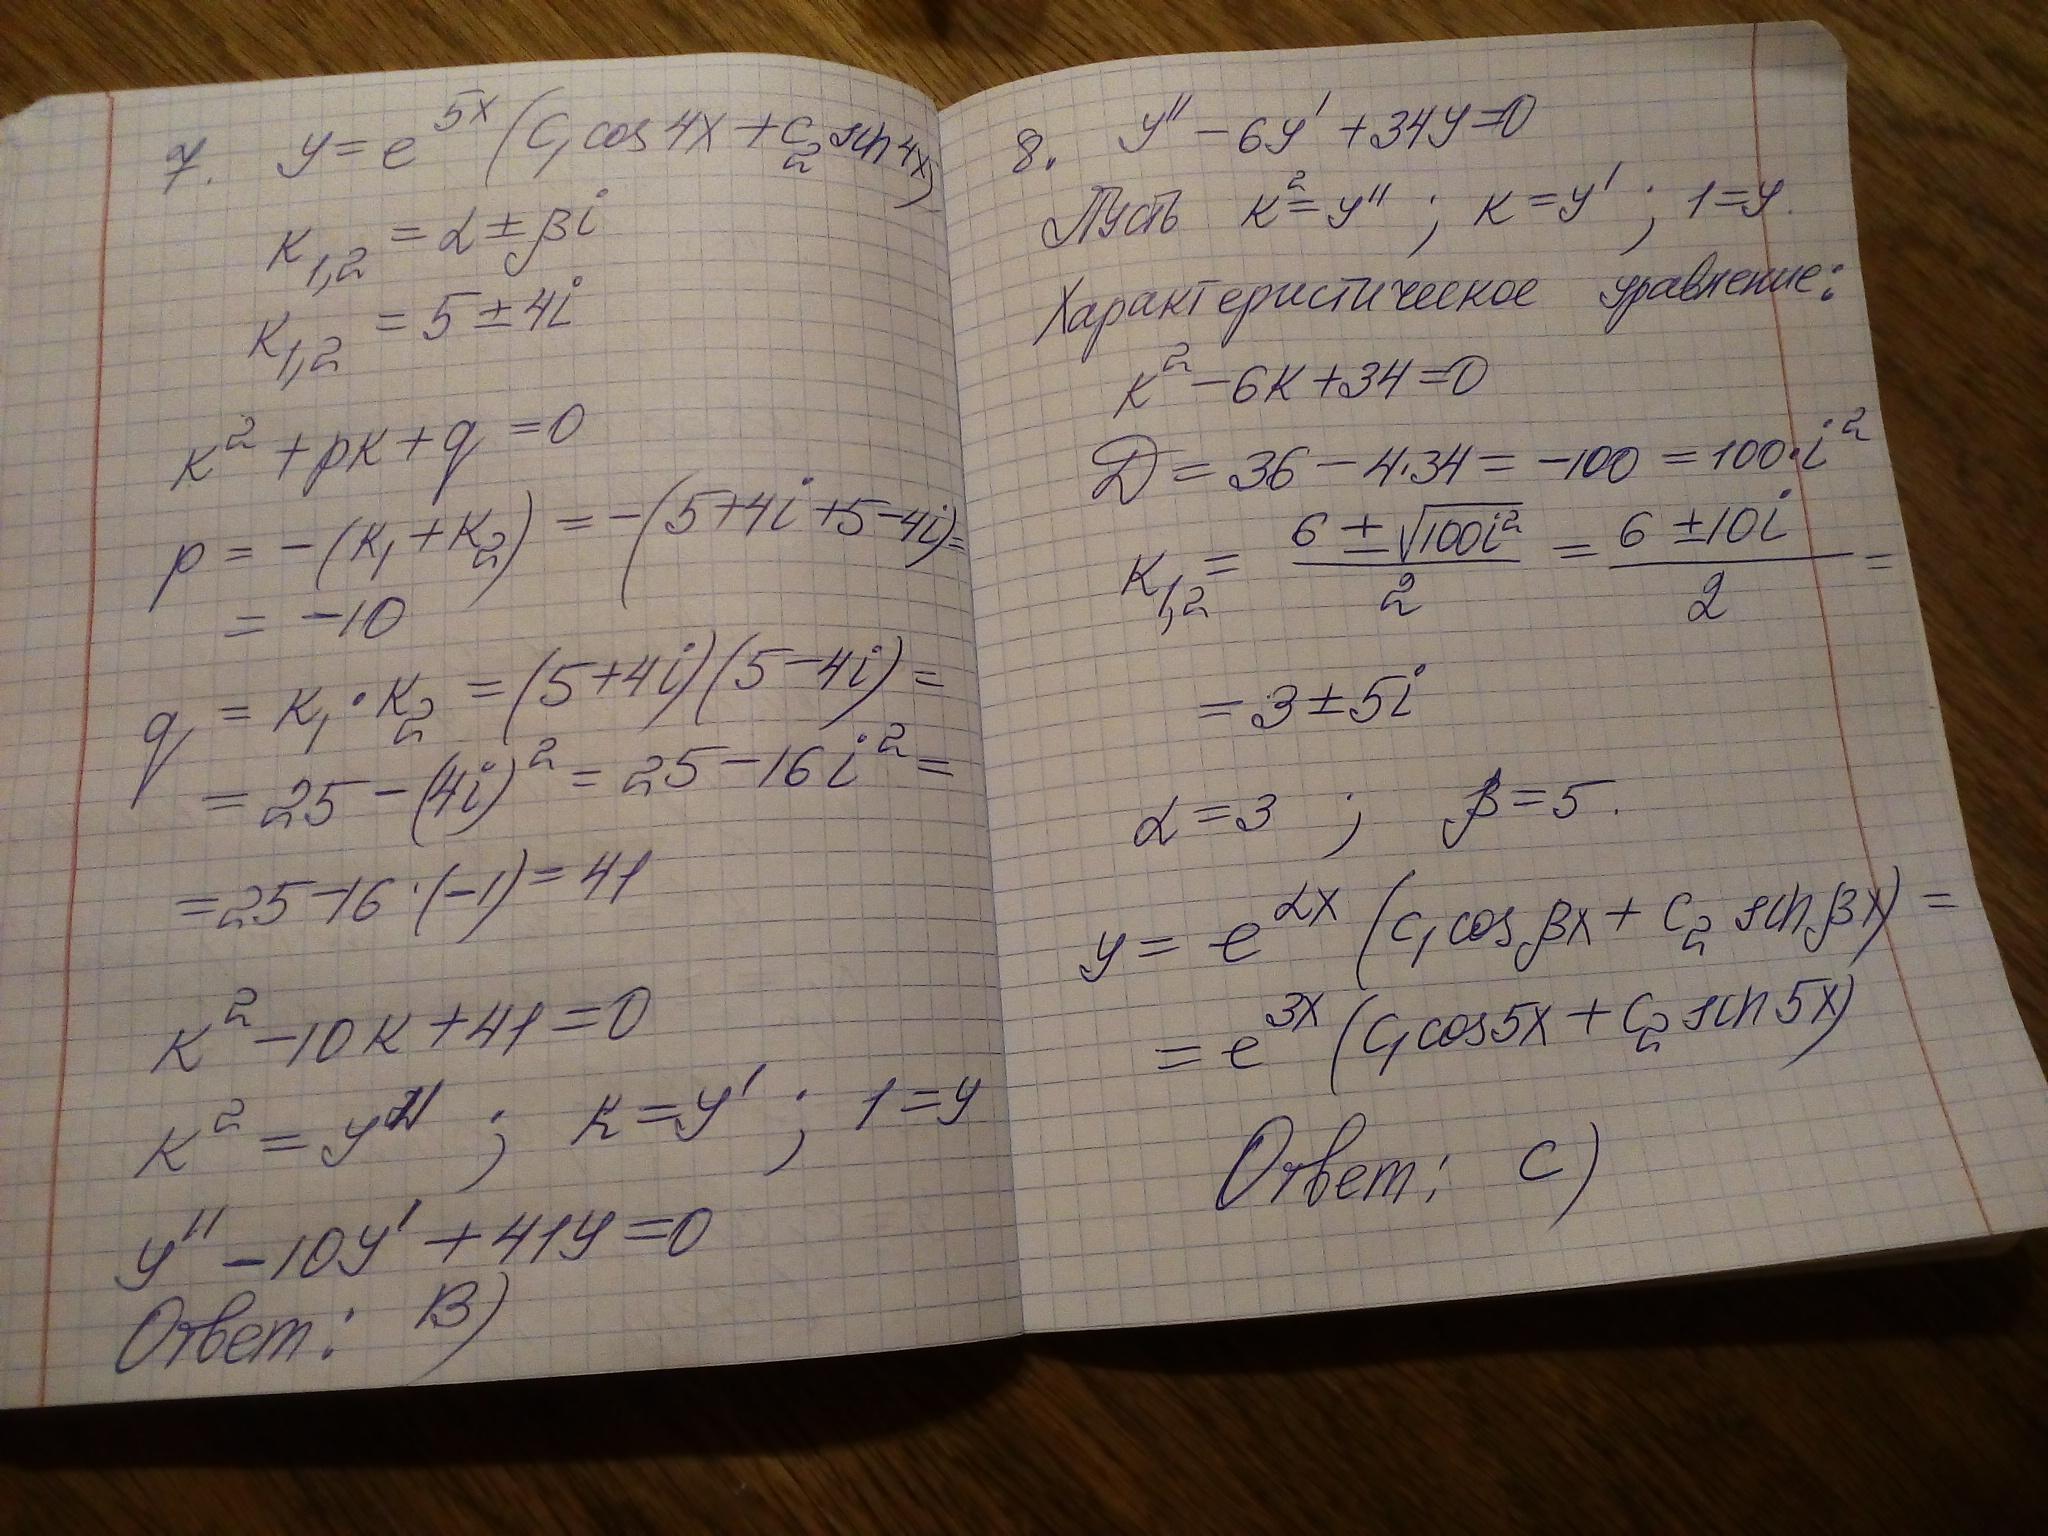 7. y = e^{5x} (C₁ cos 4x + C₂ sin 4x)
K_{1,2} = α ± βi
K_{1,2} = 5 ± 4i
K² + pK + q = 0
p = -(K₁ + K₂) = -(5+4i+5-4i) =
= -10
q = K₁ · K₂ = (5+4i)(5-4i) =
= 25 - (4i)² = 25 - 16i² =
= 25 - 16 · (-1) = 41
K² - 10K + 41 = 0
K² = y'' ; K = y' ; 1 = y
y'' - 10y' + 41y = 0
Ответ: B)
8. y'' - 6y' + 34y = 0
Пусть K² = y'' ; K = y' ; 1 = y.
Характеристическое уравнение:
K² - 6K + 34 = 0
D = 36 - 4·34 = -100 = 100·i²
K_{1,2} = \frac{6 ± √{100i²}}{2} = \frac{6 ± 10i}{2} =
= 3 ± 5i
α = 3 ; β = 5.
y = e^{αx} (C₁ cos βx + C₂ sin βx) =
= e^{3x} (C₁ cos 5x + C₂ sin 5x)
Ответ: C)